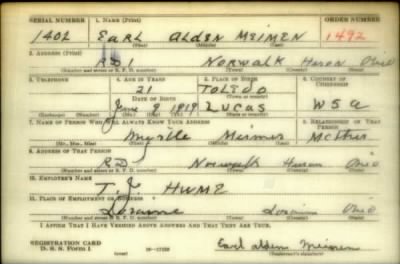 SERIAL NUMBER 1. NAME (Print) ORDER NUMBER
1402 EARL ALDEN MEIMER 1492
(First) (Middle) (Last)
2. ADDRESS (Print)
RD 1 NORWALK Huron Ohio
(Number and street or R. F. D. number) (Town) (County) (State)
3. TELEPHONE 4. AGE IN YEARS 5. PLACE OF BIRTH 6. COUNTRY OF CITIZENSHIP
21 TOLEDO
DATE OF BIRTH (Town or county)
June 9 1919 LUCAS USA
(Exchange) (Number) (Mo.) (Day) (Yr.) (State or country)
7. NAME OF PERSON WHO WILL ALWAYS KNOW YOUR ADDRESS 8. RELATIONSHIP OF THAT PERSON
Myrtle Meimer Mother
(Mr., Mrs., Miss) (First) (Middle) (Last)
9. ADDRESS OF THAT PERSON
RD Norwalk Huron Ohio
(Number and street or R. F. D. number) (Town) (County) (State)
10. EMPLOYER'S NAME
T. J. HUME
11. PLACE OF EMPLOYMENT OR BUSINESS
Lorain Ohio
(Number and street or R. F. D. number) (Town) (County) (State)
I AFFIRM THAT I HAVE VERIFIED ABOVE ANSWERS AND THAT THEY ARE TRUE.
REGISTRATION CARD
D. S. S. Form 1 16—17105 Earl Alden Meimer
(Registrant's signature)